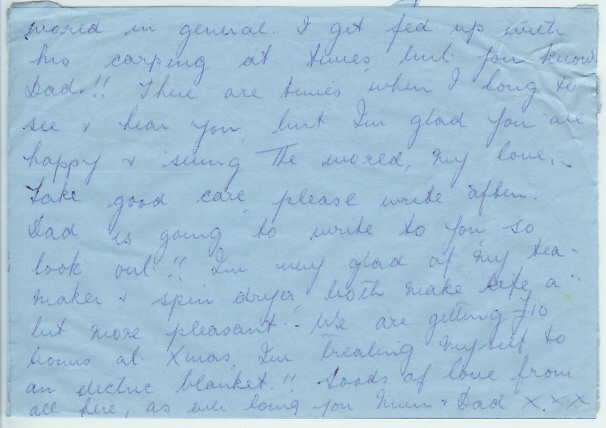 world in general. I get fed up with
his carping at times but you know
Dad.!! There are times when I long to
see & hear you, but I'm glad you are
happy & seeing The world, my love...
Take good care, please write often.
Dad is going to write to you so
look out!! I'm very glad of my tea-
maker & spin dryer both make life a
bit more pleasant. We are getting £10
bonus at Xmas, I'm treating myself to
an electric blanket.!! Loads of love from
all here, as ever loving you Mum & Dad X.X.X